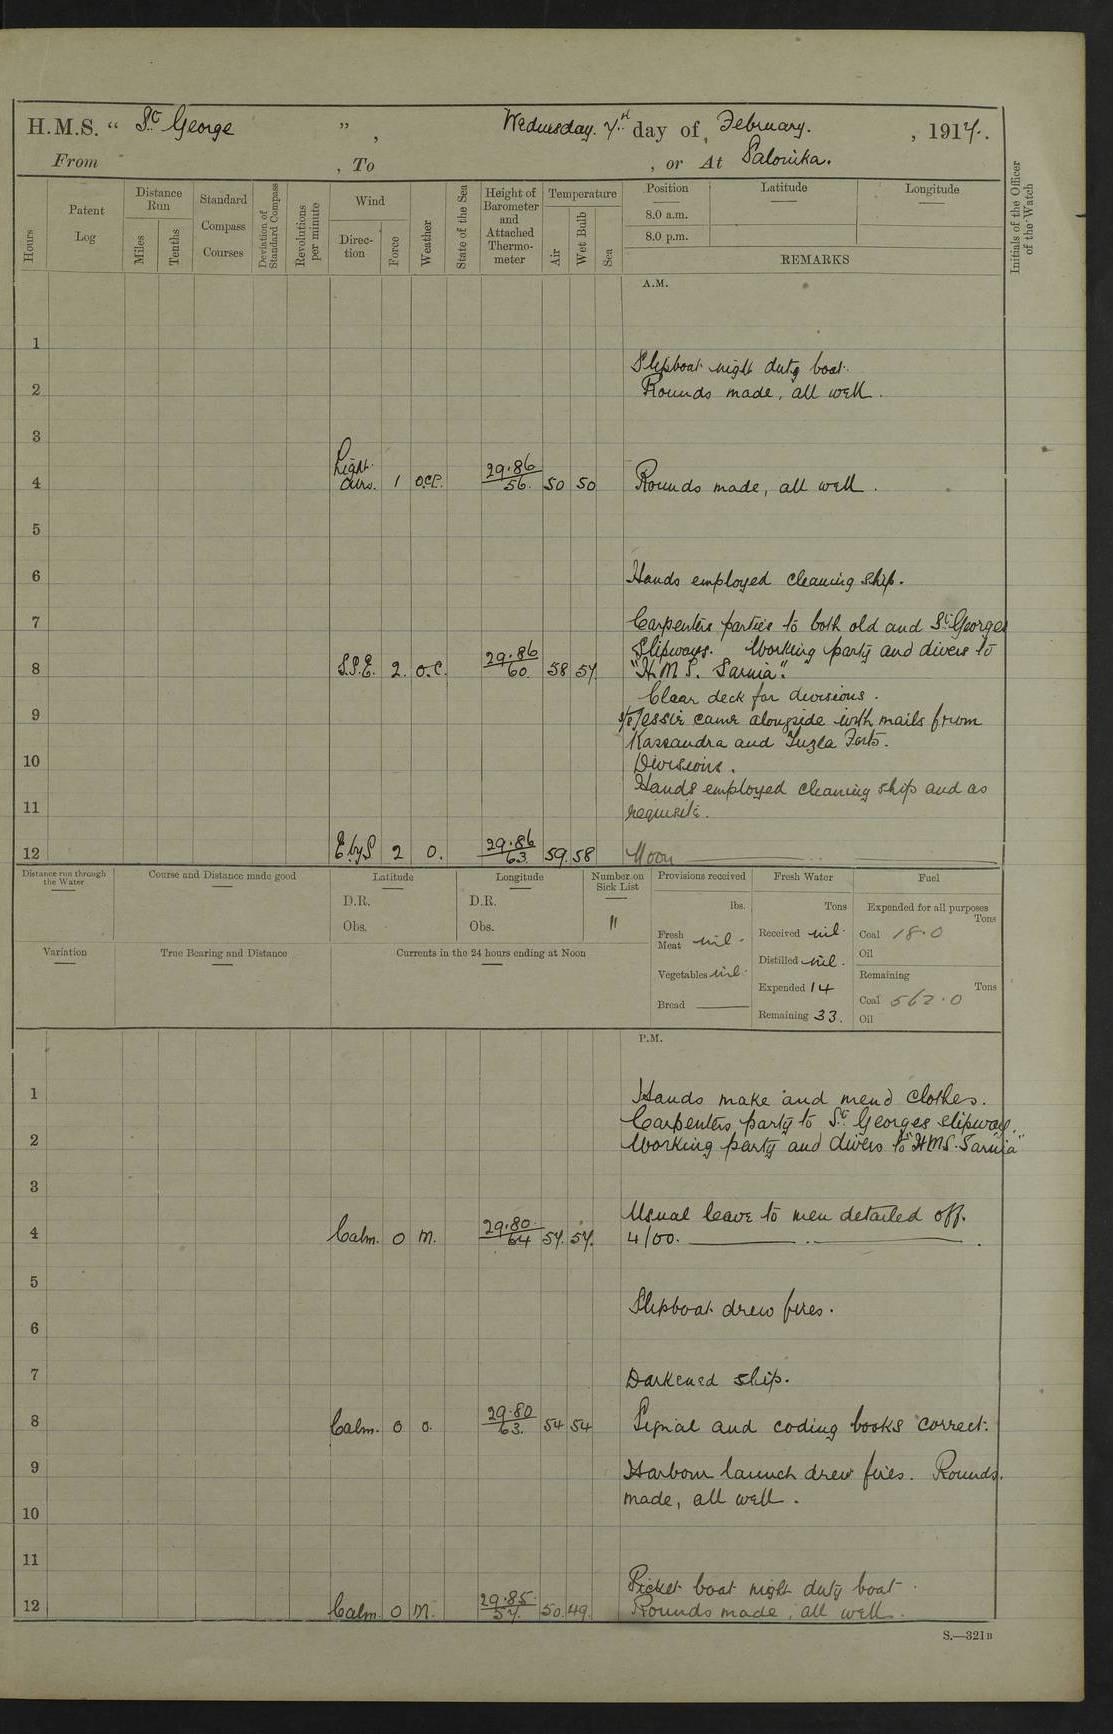 H.M.S. “ St George ” , Wednesday. 7th day of February. , 1917.
From , To , or At Salonika.
Hours
Patent Log
Distance Run
Miles
Tenths
Standard Compass Courses
Deviation of Standard Compass
Revolutions per minute
Wind
Direction
Force
Weather
State of the Sea
Height of Barometer and Attached Thermometer
Temperature
Air
Wet Bulb
Sea
Position Latitude Longitude
8.0 a.m.
8.0 p.m.
REMARKS
Initials of the Officer of the Watch
A.M.
1
Slipboat night duty boat.
2 Rounds made, all well.
3
4 Light airs. 1 o.c.p. 29.86 / 56. 50 50 Rounds made, all well.
5
6 Hands employed cleaning ship.
7 Carpenters parties to both old and St Georges
Slipways. Working party and divers to
8 S.S.E. 2. o.c. 29.86 / 60. 58 57. "H.M.S. Sarnia".
Clear deck for divisions.
9 S/S Jessie came alongside with mails from
Kassandra and Tuzla Forts.
10 Divisions.
Hands employed cleaning ship and as
11 requisite.
12 E by S 2 o. 29.86 / 63. 59. 58 Noon
Distance run through the Water
Course and Distance made good
Latitude
D.R.
Obs.
Longitude
D.R.
Obs.
Number on Sick List
11
Provisions received
lbs.
Fresh Meat nil.
Vegetables nil.
Bread
Fresh Water
Tons
Received nil.
Distilled nil.
Expended 14
Remaining 33.
Fuel
Expended for all purposes
Tons
Coal 18.0
Oil
Remaining
Tons
Coal 562.0
Oil
Variation
True Bearing and Distance
Currents in the 24 hours ending at Noon
P.M.
1 Hands make and mend clothes.
Carpenters party to St Georges slipway.
2 Working party and divers to "HMS. Sarnia"
3
Usual leave to men detailed off.
4 Calm. 0 m. 29.80. / 64 57. 57. 4/00.
5
Slipboat drew fires.
6
7 Darkened ship.
8 Calm. 0 o. 29.80 / 63. 54 54 Signal and coding books correct.
9 Harbour launch drew fires. Rounds.
made, all well.
10
11
Picket boat night duty boat.
12 Calm 0 m. 29.85. / 57. 50. 49. Rounds made, all well.
S.—321B